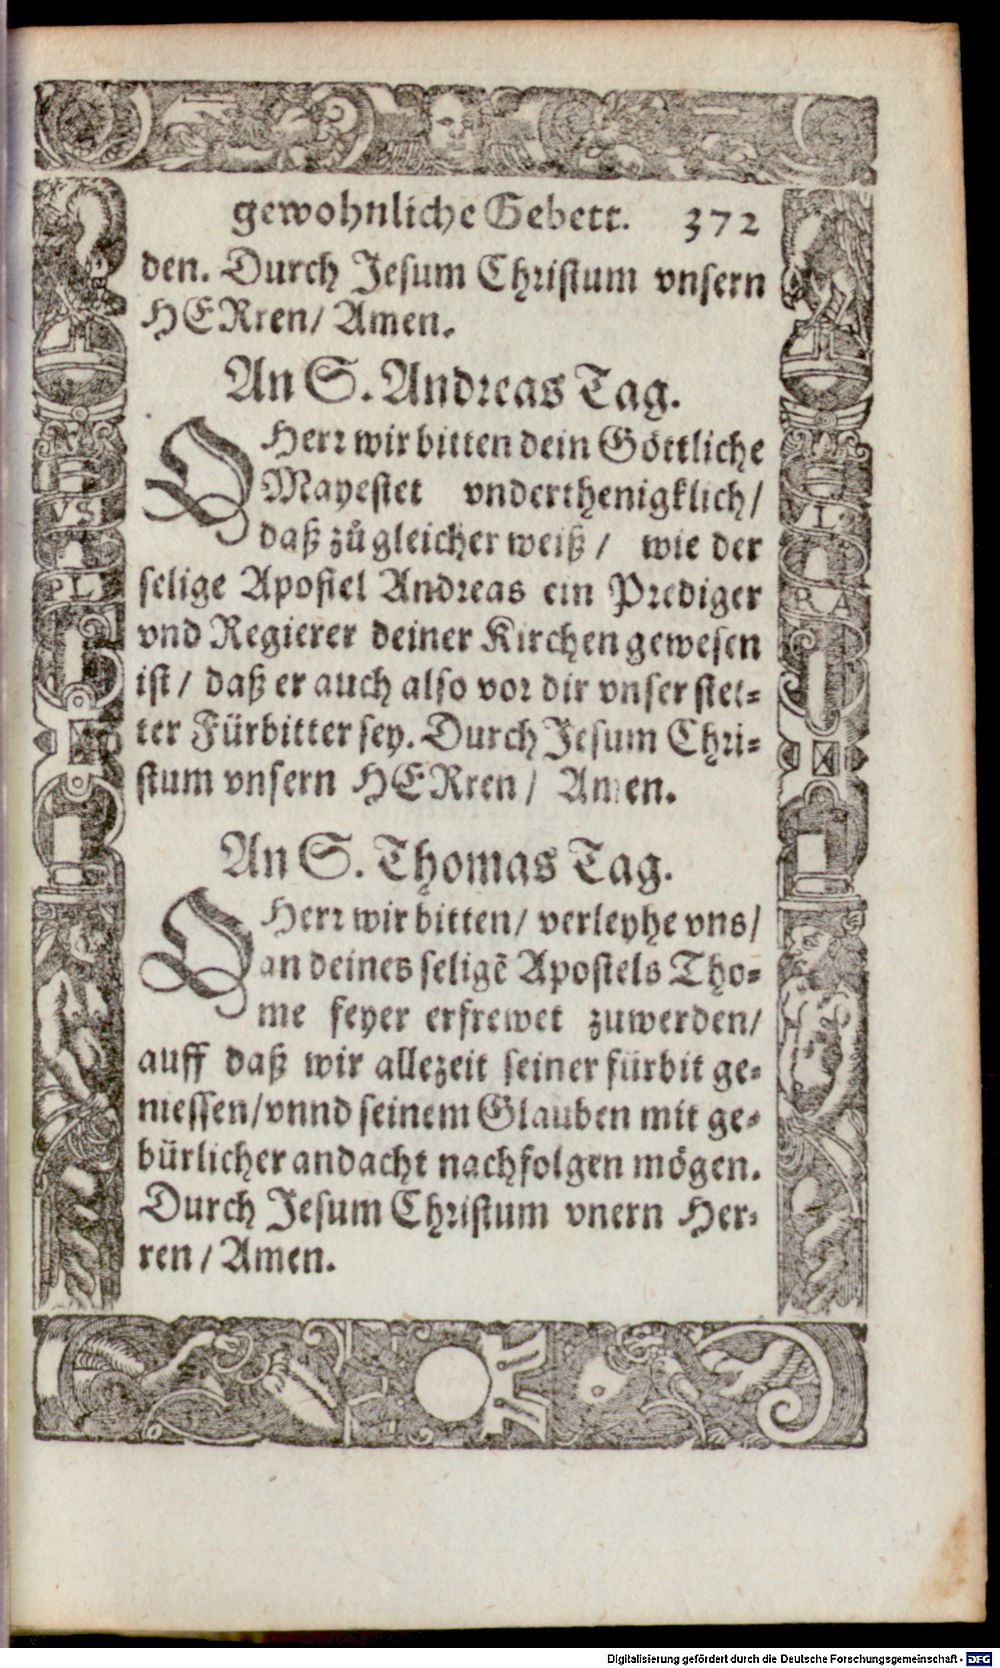 gewohnliche Gebett. 372
den. Durch Jesum Christum vnsern
HERren/ Amen.
An S. Andreas Tag.
O Herr wir bitten dein Göttliche
Mayestet vnderthenigklich/
daß zů gleicher weiß / wie der
selige Apostel Andreas ein Prediger
vnd Regierer deiner Kirchen gewesen
ist / daß er auch also vor dir vnser stet-
ter Fürbitter sey. Durch Jesum Chri-
stum vnsern HERren / Amen.
An S. Thomas Tag.
O Herr wir bitten/ verleyhe vns/
an deines seligē Apostels Tho-
me feyer erfrewet zuwerden/
auff daß wir allezeit seiner fürbit ge-
niessen/vnnd seinem Glauben mit ge-
bürlicher andacht nachfolgen mögen.
Durch Jesum Christum vnern Her-
ren / Amen.
VS
PL
RA
Digitalisierung gefördert durch die Deutsche Forschungsgemeinschaft - DFG